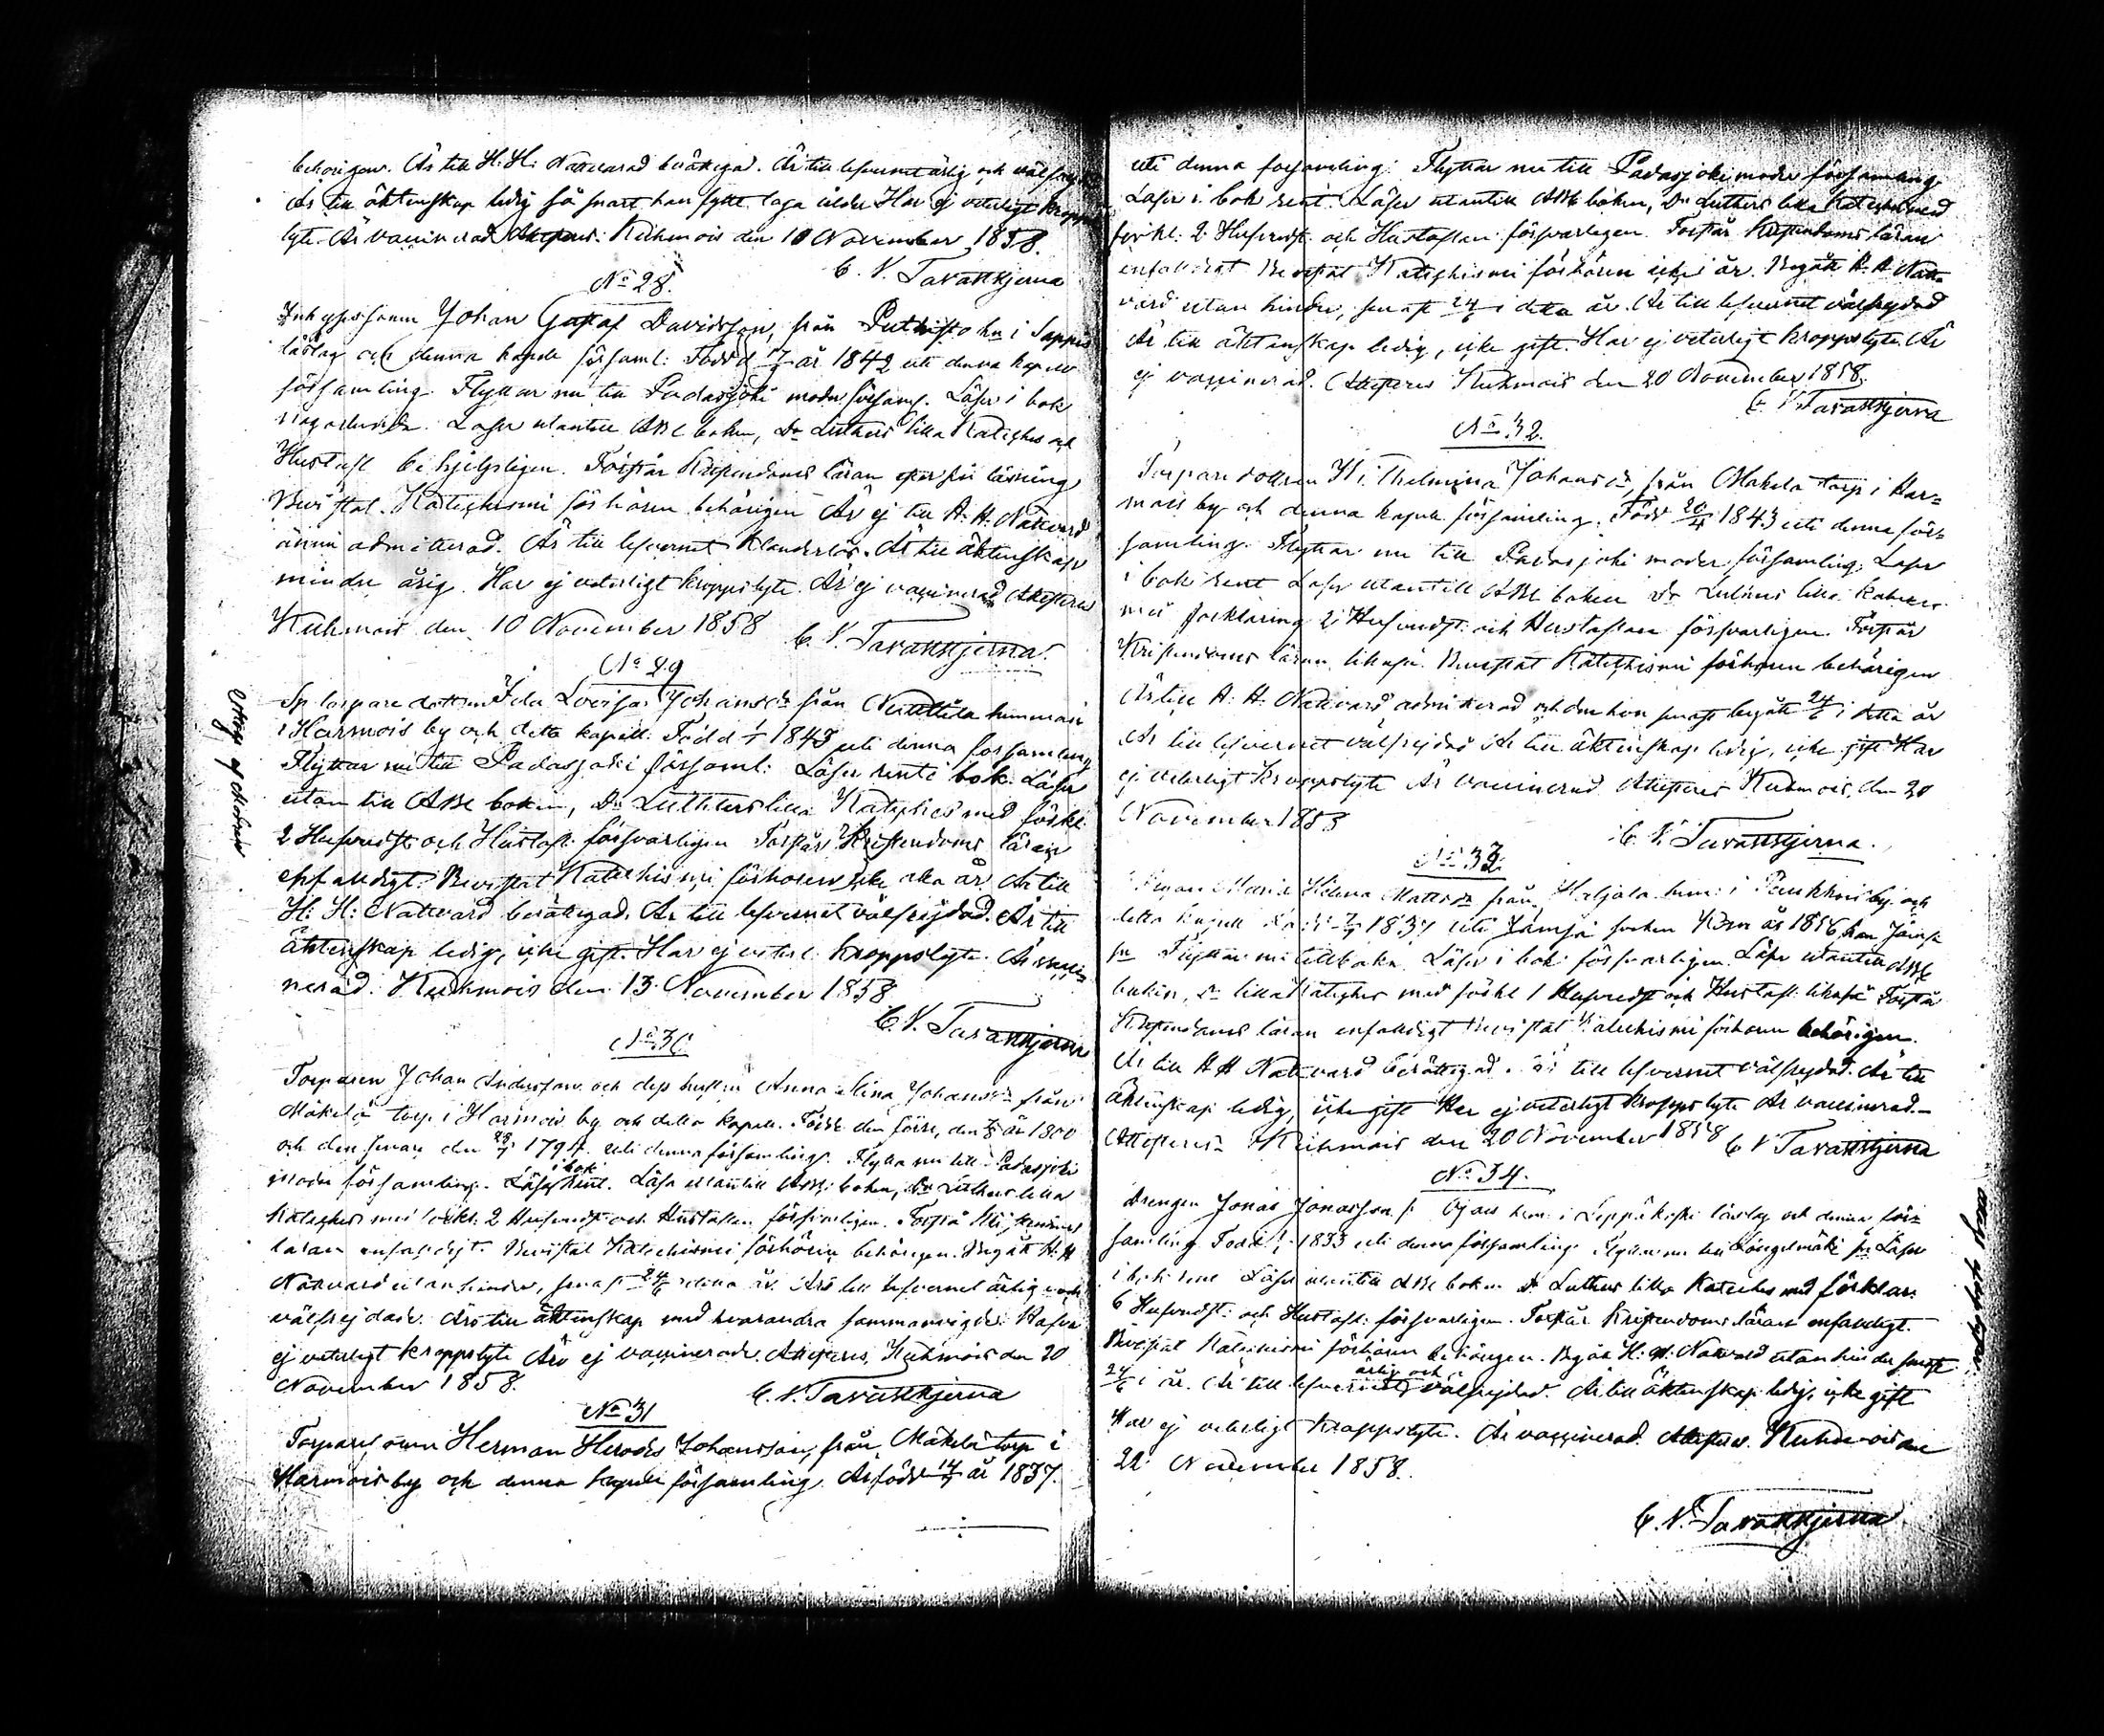 behörigen. Är till H. H. Nattvard berättigad. Är till lefvernet ärlig och välfrejdad
Är till äktenskap ledig så snart han fyllt laga ålder Har ej veterligt kropps
lyte. Är vaccinerad Attesteras. Kuhmois den 10 November 1858.
C. V. Tavaststjerna
No 28.
Johan Gustaf Davidsson, från hn i Sappis
låxlag och denna kapell församl: Född d år 1842 uti denna kapell
församling. Flyttar nu till Padasjoki moder församl. Läser i bok
någorlunda. Läser utantill ABC boken, Dr Luthers lilla Kateches och
Hustafl behjelpligen. Förstår Kristendoms läran efter sin läsning
Bevistat Katechismi förhören behörigen Är ej till H. H. Nattvard
ännu admitterad. Är till lefvernet klanderlös. Är till äktenskap
minderårig. Har ej veterligt kroppslyte. Är ej vaccinerad Attesteras
Kuhmois den 10 November 1858 C. V. Tavaststjerna.
No 29
Sp torpare dottren Ida Lovisa Johansdr från hemman
i Harmois by och detta kapell. Född 1843 uti denna församling
Flyttar nu till Padasjoki församl: Läser rent i bok. Läser
utan till ABC boken, Dr Luthers lilla Kateches med förkl.
2 Husfruft och Hustafl. försvarligen Förstår Kristendoms läran
enfaldigt. Bevistat Katechismi förhören icke alla år Är till
H: H: Nattvard berättigad. Är till lefvernet välfrejdad. Är till
äktenskap ledig, icke gift. Har ej veterl. kroppslyte. Är vacci-
nerad. Kuhmois den 13 November 1858
C. V. Tavaststjerna
No 30
Torparen Johan Andersson och dess hustru Anna Stina Johansdr från
Mäkelä torp i Harmois by och detta kapell. Född den förre, den år 1800
och den senare den 179 uti denna församling. Flytta nu till Padasjoki
moder församling. Läsa i bok rent. Läsa utantill ABC boken, Dr Luthers lilla
Kateches med förkl. 2 och Hustaflan försvarligen. Förstå Kristendoms
läran enfaldigt. Bevistat Katechismi förhören behörigen. Begått H. H
Nattvard utan hinder, senast 24/6 detta år. Äro till lefvernet ärlig och
välfrejdade. Äro till äktenskap med hvarandra sammanvigde. Hafva
ej veterligt kroppslyte Äro ej vaccinerade. Attesteras, Kuhmois den 20
November 1858.
C. V. Tavaststjerna
No 31
Torpare sonen Herman Johansson, från Mäkelä torp i
Harmois by och denna kapell församling. Är född 14 år 1837.
uti denna församling. Flyttar nu till Padasjoki moder församling.
Läser i bok rent. Läser utantill ABC boken, Dr Luthers lilla Kateches med
förkl: 2 och Hustaflan försvarligen Förstår Kristendoms läran
enfaldigt Bevistat Katechismi förhören i år. Begått H. H. Natt-
vard utan hinder, senast 24/6 i detta år. Är till lefvernet välfrejdad
Är till äktenskap ledig, icke gift. Har ej veterligt kroppslyte. Är
ej vaccinerad. Attesteras Kuhmois den 20 November 1858.
C. V. Tavaststjerna
No 32.
Torpare dottren Wilhelmina Johansdr, från Mäkelä torp i Har-
mois by och denna kapell församling. Född 1843 uti denna för-
samling. Flyttar nu till Padasjoki moder församling. Läser
i bok rent Läser utantill ABC boken Dr Luthers lilla kateches
med förklaring 2 och Hustaflan försvarligen. Förstår
Kristendoms läran likaså. Bevistat Katechismi förhören behörigen
Är till H. H. Nattvard admitterad och den hon senast begått 24/6 i detta år
Är till lefvernet välfrejdad Är till äktenskap ledig, icke gift Har
ej veterligt kroppslyte Är vaccinerad Attesteras Kuhmois, den 20
November 1858
C. V. Tavaststjerna.
No 33
Pigan Maria Helena Mattsdr från hem: i by och
detta kapell 1837 uti Jämsä socken Kom år 1856 från Jämsä
Flyttar nu tillbaka. Läser i bok försvarligen. Läser utantill ABC
boken, Dr lilla Kateches med förkl 1 och Hustafl: likaså Förstår
Kristendoms läran enfaldigt Bevistat Katechismi förhören behörigen.
Är till H H Nattvard berättigad. Är till lefvernet välfrejdad. Är till
äktenskap ledig, icke gift Har ej veterligt kroppslyte Är vaccinerad.-
Attesteras Kuhmois den 20 November 1858 C V Tavaststjerna
No 34.
Drengen Jonas Jonasson fr. hem: i Leppäkoski låxlag och denna för-
samling Född 1833 uti denna församling. Flyttar nu till Längelmäki Läser
i bok rent Läser utantill ABC boken Dr Luthers lilla Kateches med förklar.
6 och Hustafl: försvarligen. Förstår Kristendoms läran enfaldigt.
Bevistat Katechismi förhören behörigen. Begått H: H: Nattvard utan hinder senast
24/6 i år. Är till lefvernet ärlig och välfrejdad. Är till äktenskap ledig, icke gift
Har ej veterligt kroppslyte. Är vaccinerad. Attesteras. Kuhmois den
22 November 1858.
C. V. Tavaststjerna